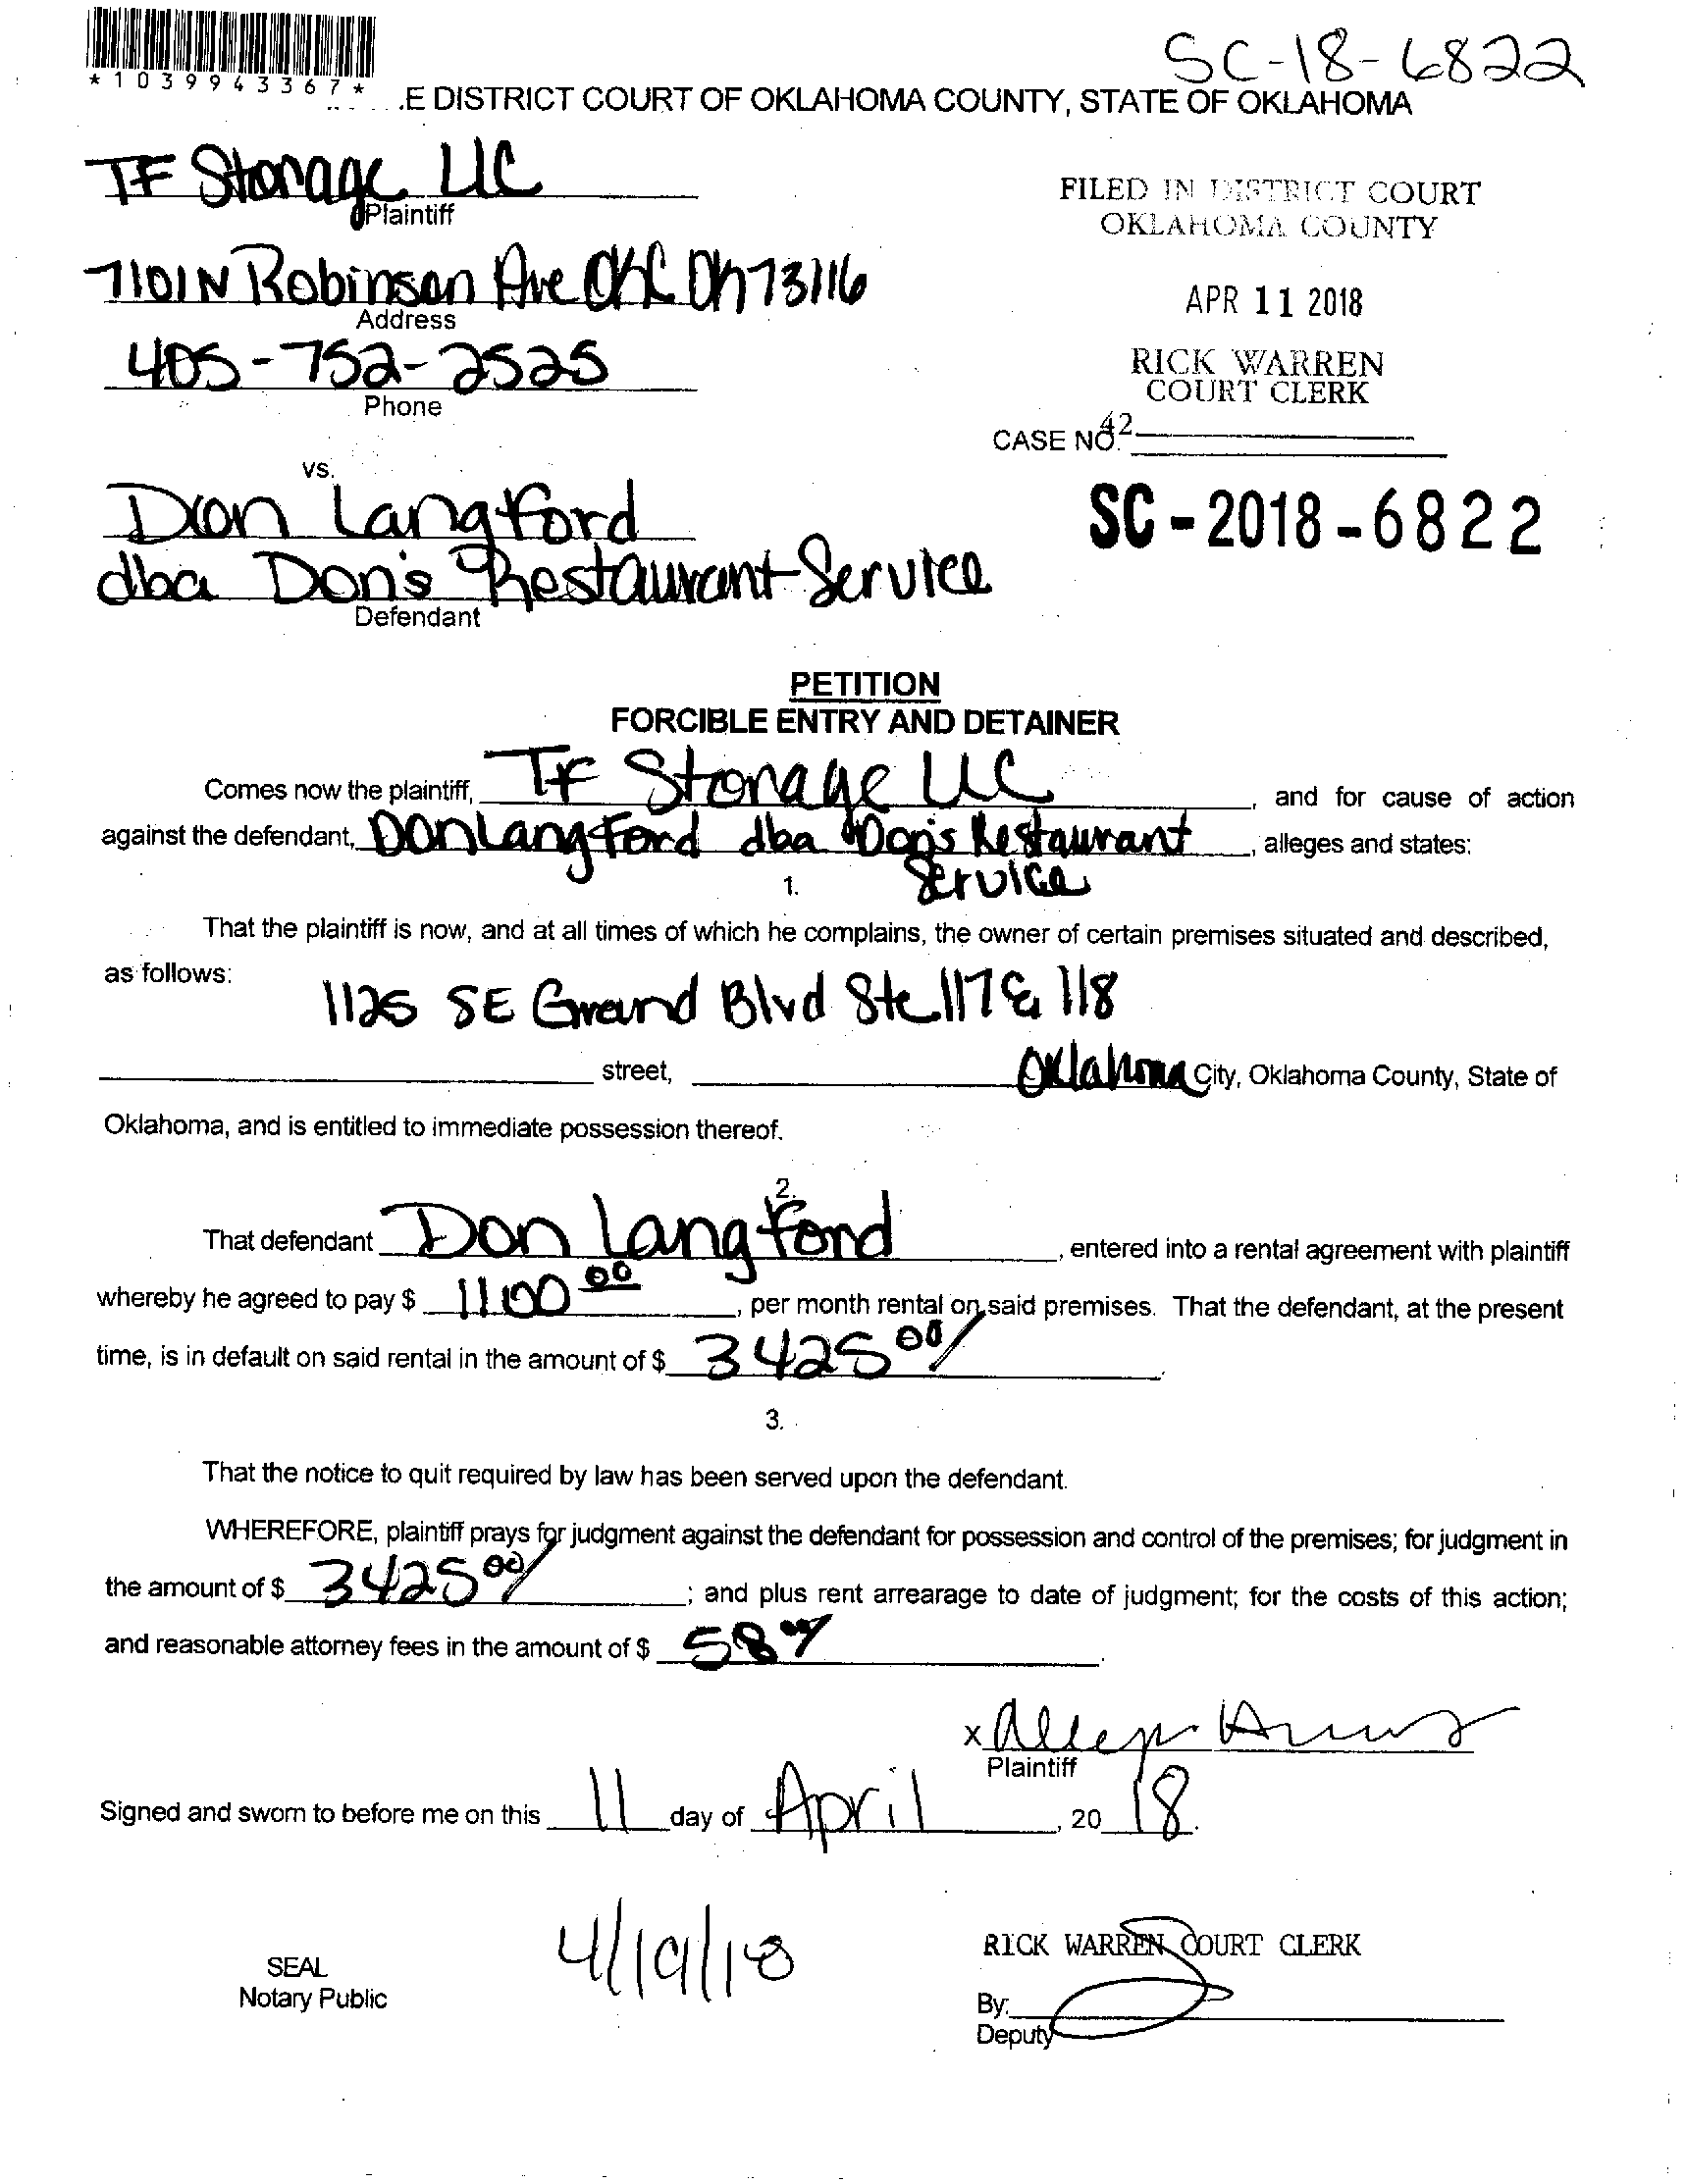 SC-18-6822
*1039943367*
.E DISTRICT COURT OF OKLAHOMA COUNTY, STATE OF OKLAHOMA
TF Storage LLC
Plaintiff
FILED IN DISTRICT COURT
OKLAHOMA COUNTY
7101 N Robinson Ave OKC Ok 73116
Address
APR 11 2018
405-752-2525
Phone
RICK WARREN
COURT CLERK
42
CASE NO.
vs.
Don Langford
SC-2018-6822
dba Don's Restaurant Service
Defendant
PETITION
FORCIBLE ENTRY AND DETAINER
Comes now the plaintiff, TF Storage LLC, and for cause of action
against the defendant, Don Langford dba Don's Restaurant, alleges and states:
Service
1.
That the plaintiff is now, and at all times of which he complains, the owner of certain premises situated and described,
as follows:
1125 SE Grand Blvd Ste 117 & 118
street, Oklahoma City, Oklahoma County, State of
Oklahoma, and is entitled to immediate possession thereof.
2.
That defendant Don Langford, entered into a rental agreement with plaintiff
whereby he agreed to pay $ 1100 00, per month rental on said premises. That the defendant, at the present
time, is in default on said rental in the amount of $ 3425 00/.
3.
That the notice to quit required by law has been served upon the defendant.
WHEREFORE, plaintiff prays for judgment against the defendant for possession and control of the premises; for judgment in
the amount of $ 3425 00/; and plus rent arrearage to date of judgment; for the costs of this action;
and reasonable attorney fees in the amount of $ 58.
x
Plaintiff
Signed and sworn to before me on this 11 day of April, 20 18.
4/19/18
RICK WARREN COURT CLERK
SEAL
Notary Public
By:
Deputy